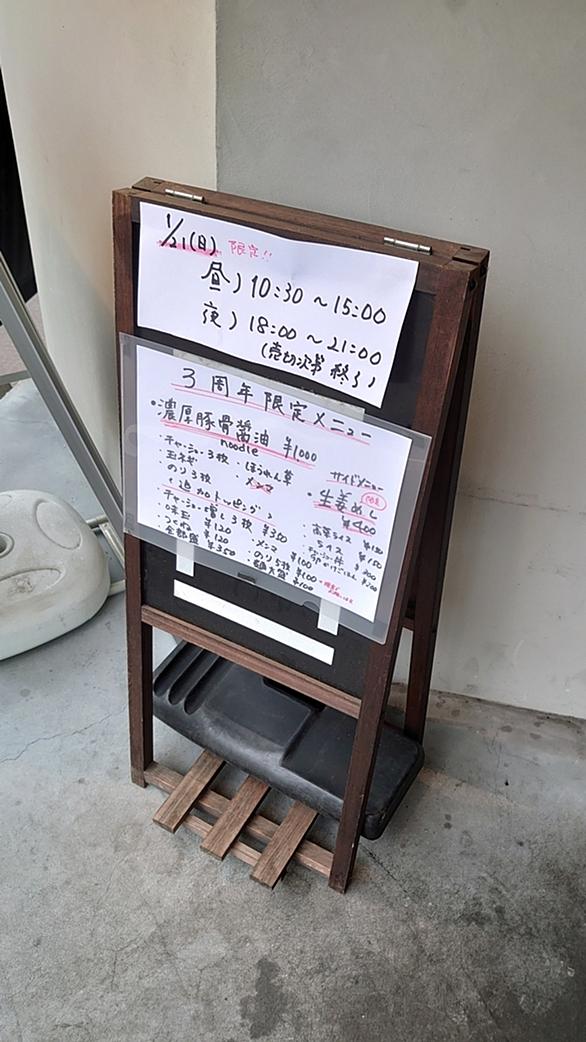 1/21(日) 限定!!
昼) 10:30 ～ 15:00
夜) 18:00 ～ 21:00
(売切次第 終了)
3周年限定メニュー
・濃厚豚骨醤油 ¥1000
noodle
・チャーシュー3枚 ・ほうれん草
・玉ネギ ・メンマ
・のり3枚
<追加トッピング>
・チャーシュー増し3枚 ¥350
・味玉 ¥120 ・メンマ
・つくね ¥120 ・のり5枚 ¥100
・全部盛 ¥350 ・麺大盛 ¥100
サイドメニュー
・生姜めし 限定
¥400
・高菜ライス
・ライス ¥150
・チャーシュー丼 ¥300
・卵かけごはん ¥200